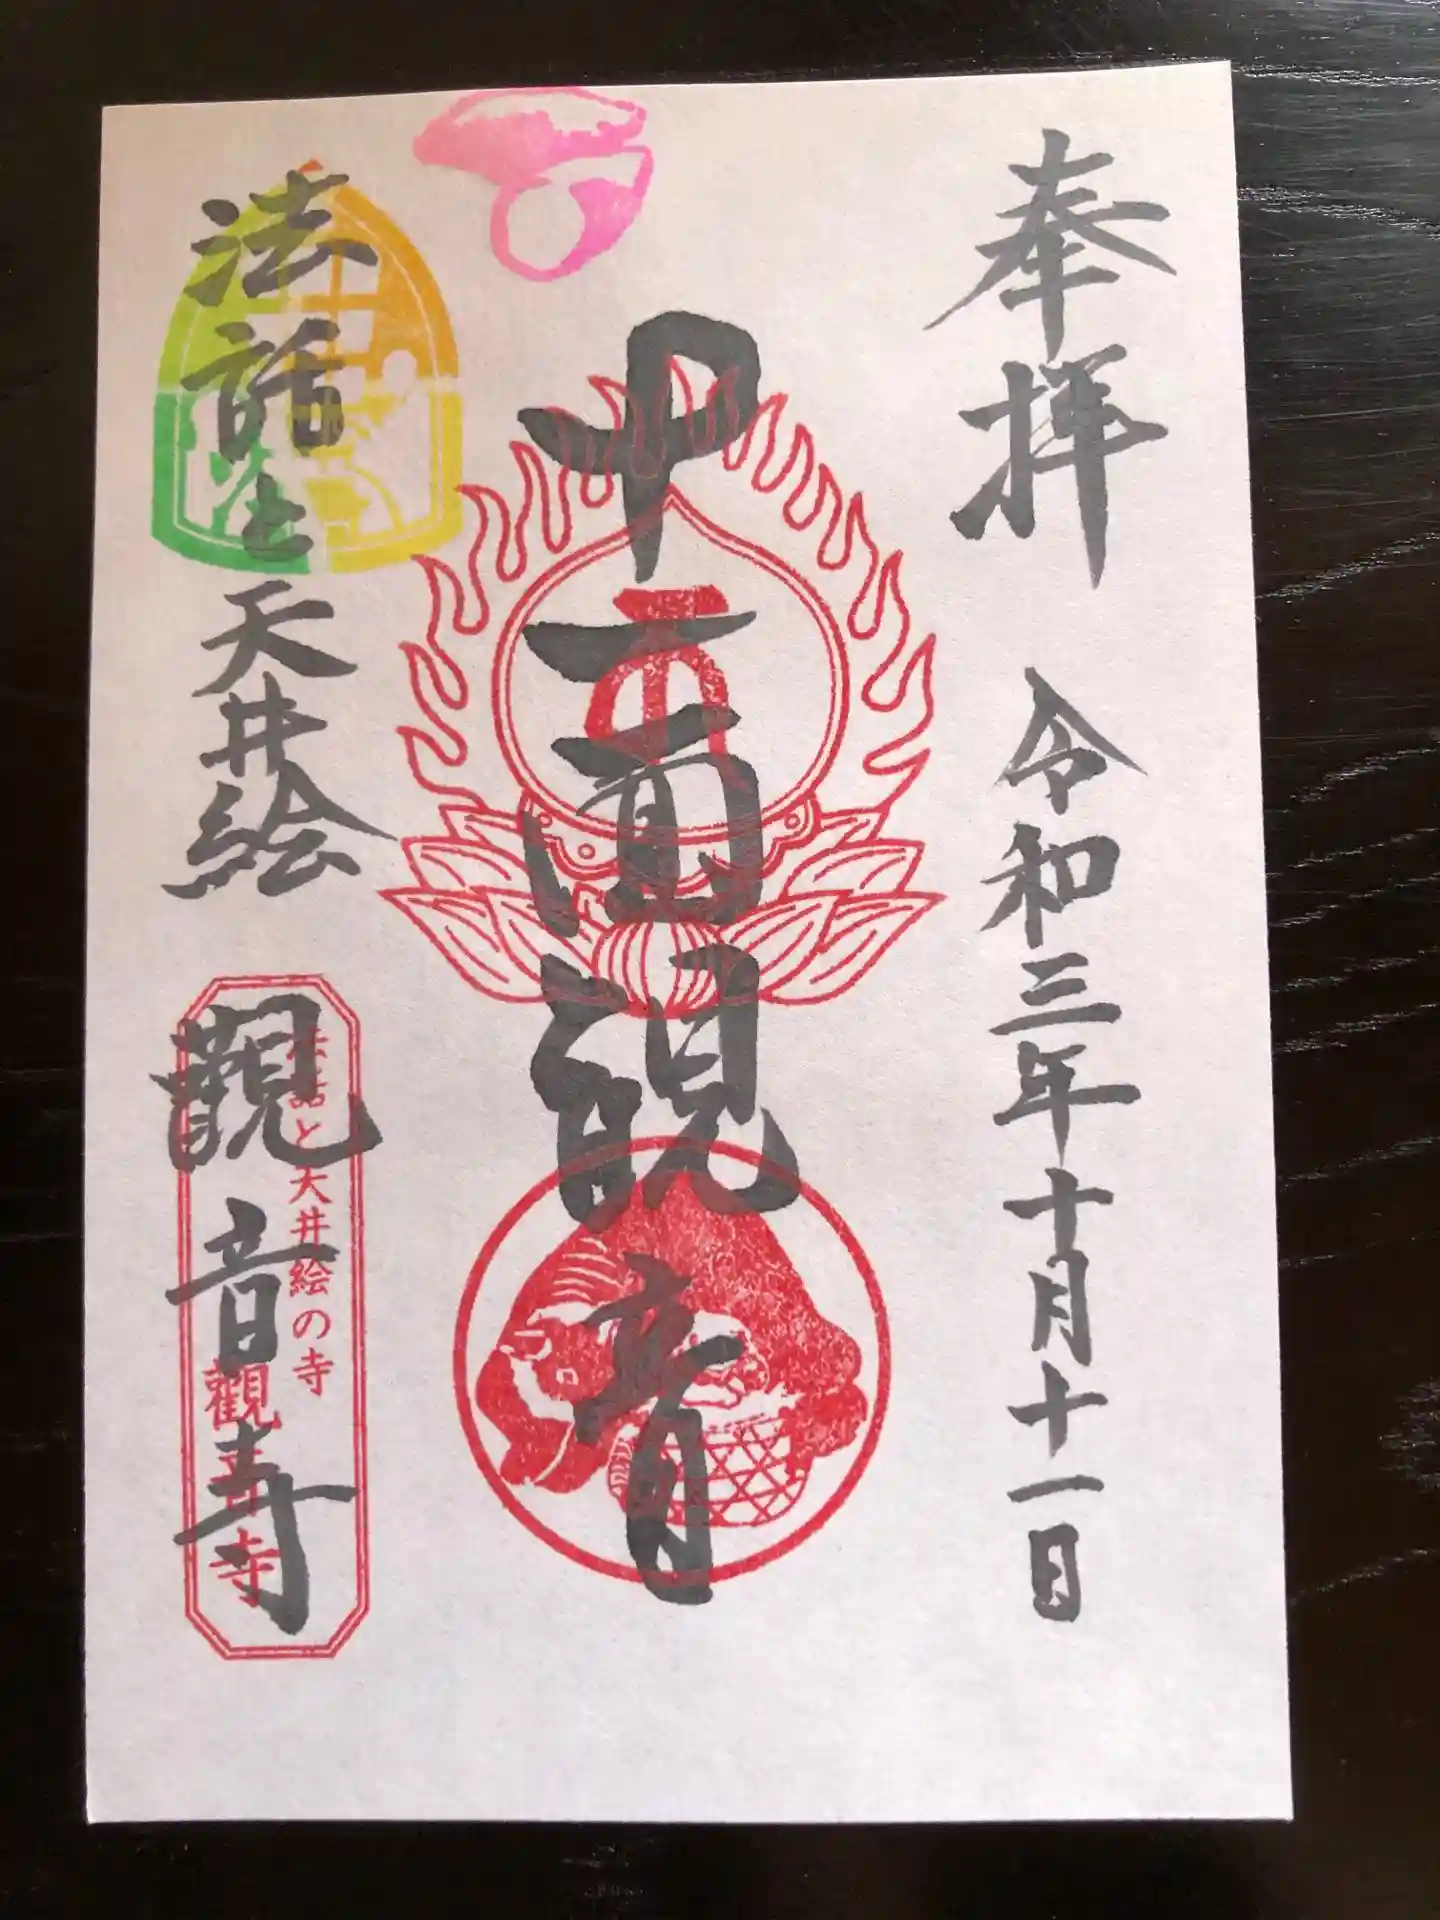 奉拝
令和三年十月十一日
十一面観音
法話と天井絵
觀音寺
法話と天井絵の寺
觀音寺